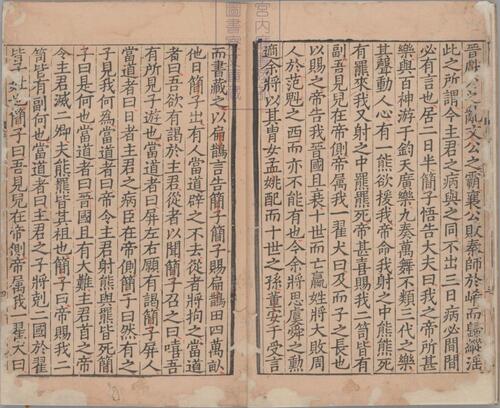 晉獻公之亂文公之霸襄公敗秦師於崤而歸縱淫
此之所謂今主君之病與之同不出三日病必間間
必有言也居二日半簡子悟告大夫曰我之帝所甚
樂與百神游于鈞天廣樂九奏萬舞不類三代之樂
其聲動人心一熊欲援我帝命我射之中熊熊死
有羆來我又射之中羆羆死帝甚喜賜我二笥皆有
副吾見兒在帝側帝属我一翟犬曰及而子之長也
以賜之帝告我晉國且衰十世而亡嬴姓將大敗周
人於范魁之西而亦不能有也今余將思虞舜之勳
適余將以其胄女孟姚配而十世之孫董安于受言
而書藏之以扁鵲言告簡子簡子賜扁鵲田四萬畝
他日簡子出有人當道辟之不去從者將拘之當道
者曰吾欲有謁於主君從者以聞簡子召之曰嘻吾
有所見子遊也當道者曰屏左右願有謁簡子屏人
當道者曰日者主君之病臣在帝側簡子曰然有之
子見我何為當道者曰帝令主君射熊與羆皆死簡
子曰是何也當道者曰晉國且有大難主君首之帝
令主君滅二卿夫熊羆皆其祖也簡子曰帝賜我二
笥皆有副何也當道者曰主君之子將剋二國於翟
皆子姓也簡子曰吾見兒在帝側帝属我一翟犬曰
宮內
圖書寮